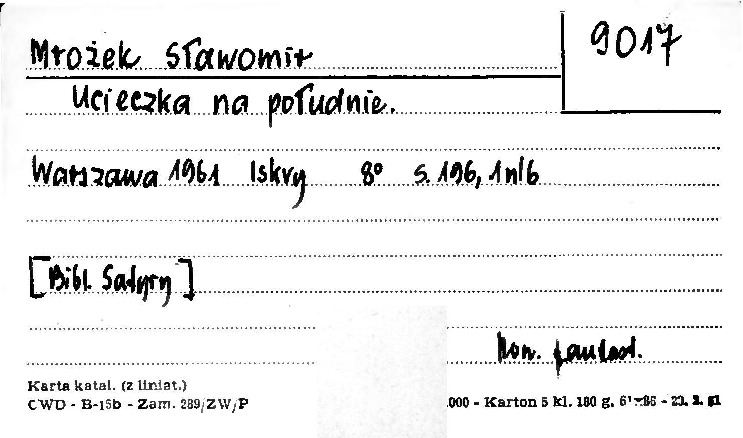 Mrożek Sławomir
9017
Ucieczka na południe.
Warszawa 1961 Iskry 8° S. 196, 1 nlb
[Bibl. Satyry]
Karta katal. (z liniat.)
CWD - B-15b - Zam. 289/ZW/P
.000 - Karton 5 kl. 180 g,